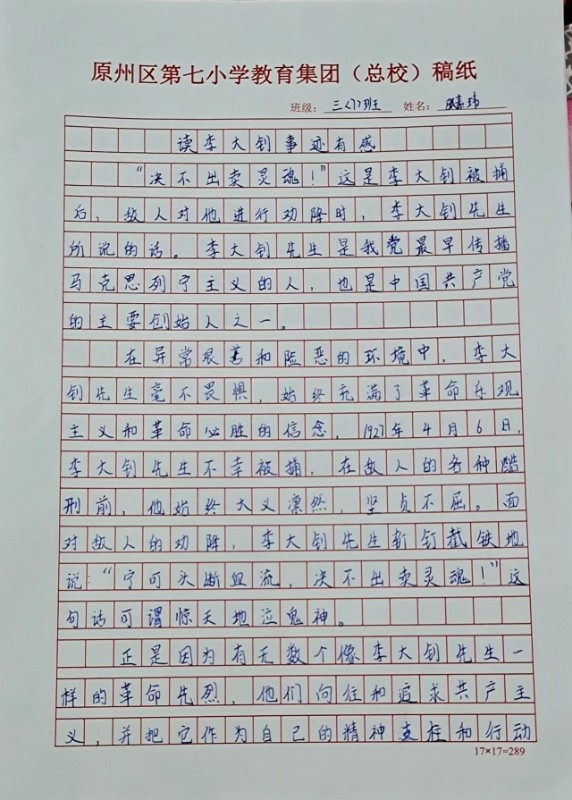 原州区第七小学教育集团（总校）稿纸
班级：三（7）班 姓名：嘉玮
读李大钊事迹有感
“决不出卖灵魂！”这是李大钊被捕
后，敌人对他进行劝降时，李大钊先生
所说的话。李大钊先生是我党最早传播
马克思列宁主义的人，也是中国共产党
的主要创始人之一。
在异常艰苦和险恶的环境中，李大
钊先生毫不畏惧，始终充满了革命乐观
主义和革命必胜的信念，1927年4月6日，
李大钊先生不幸被捕，在敌人的各种酷
刑前，他始终大义凛然，坚贞不屈。面
对敌人的劝降，李大钊先生斩钉截铁地
说：“宁可头断血流，决不出卖灵魂！”这
句话可谓惊天地泣鬼神。
正是因为有无数个像李大钊先生一
样的革命先烈，他们向往和追求共产主
义，并把它作为自己的精神支柱和行动
17×17=289